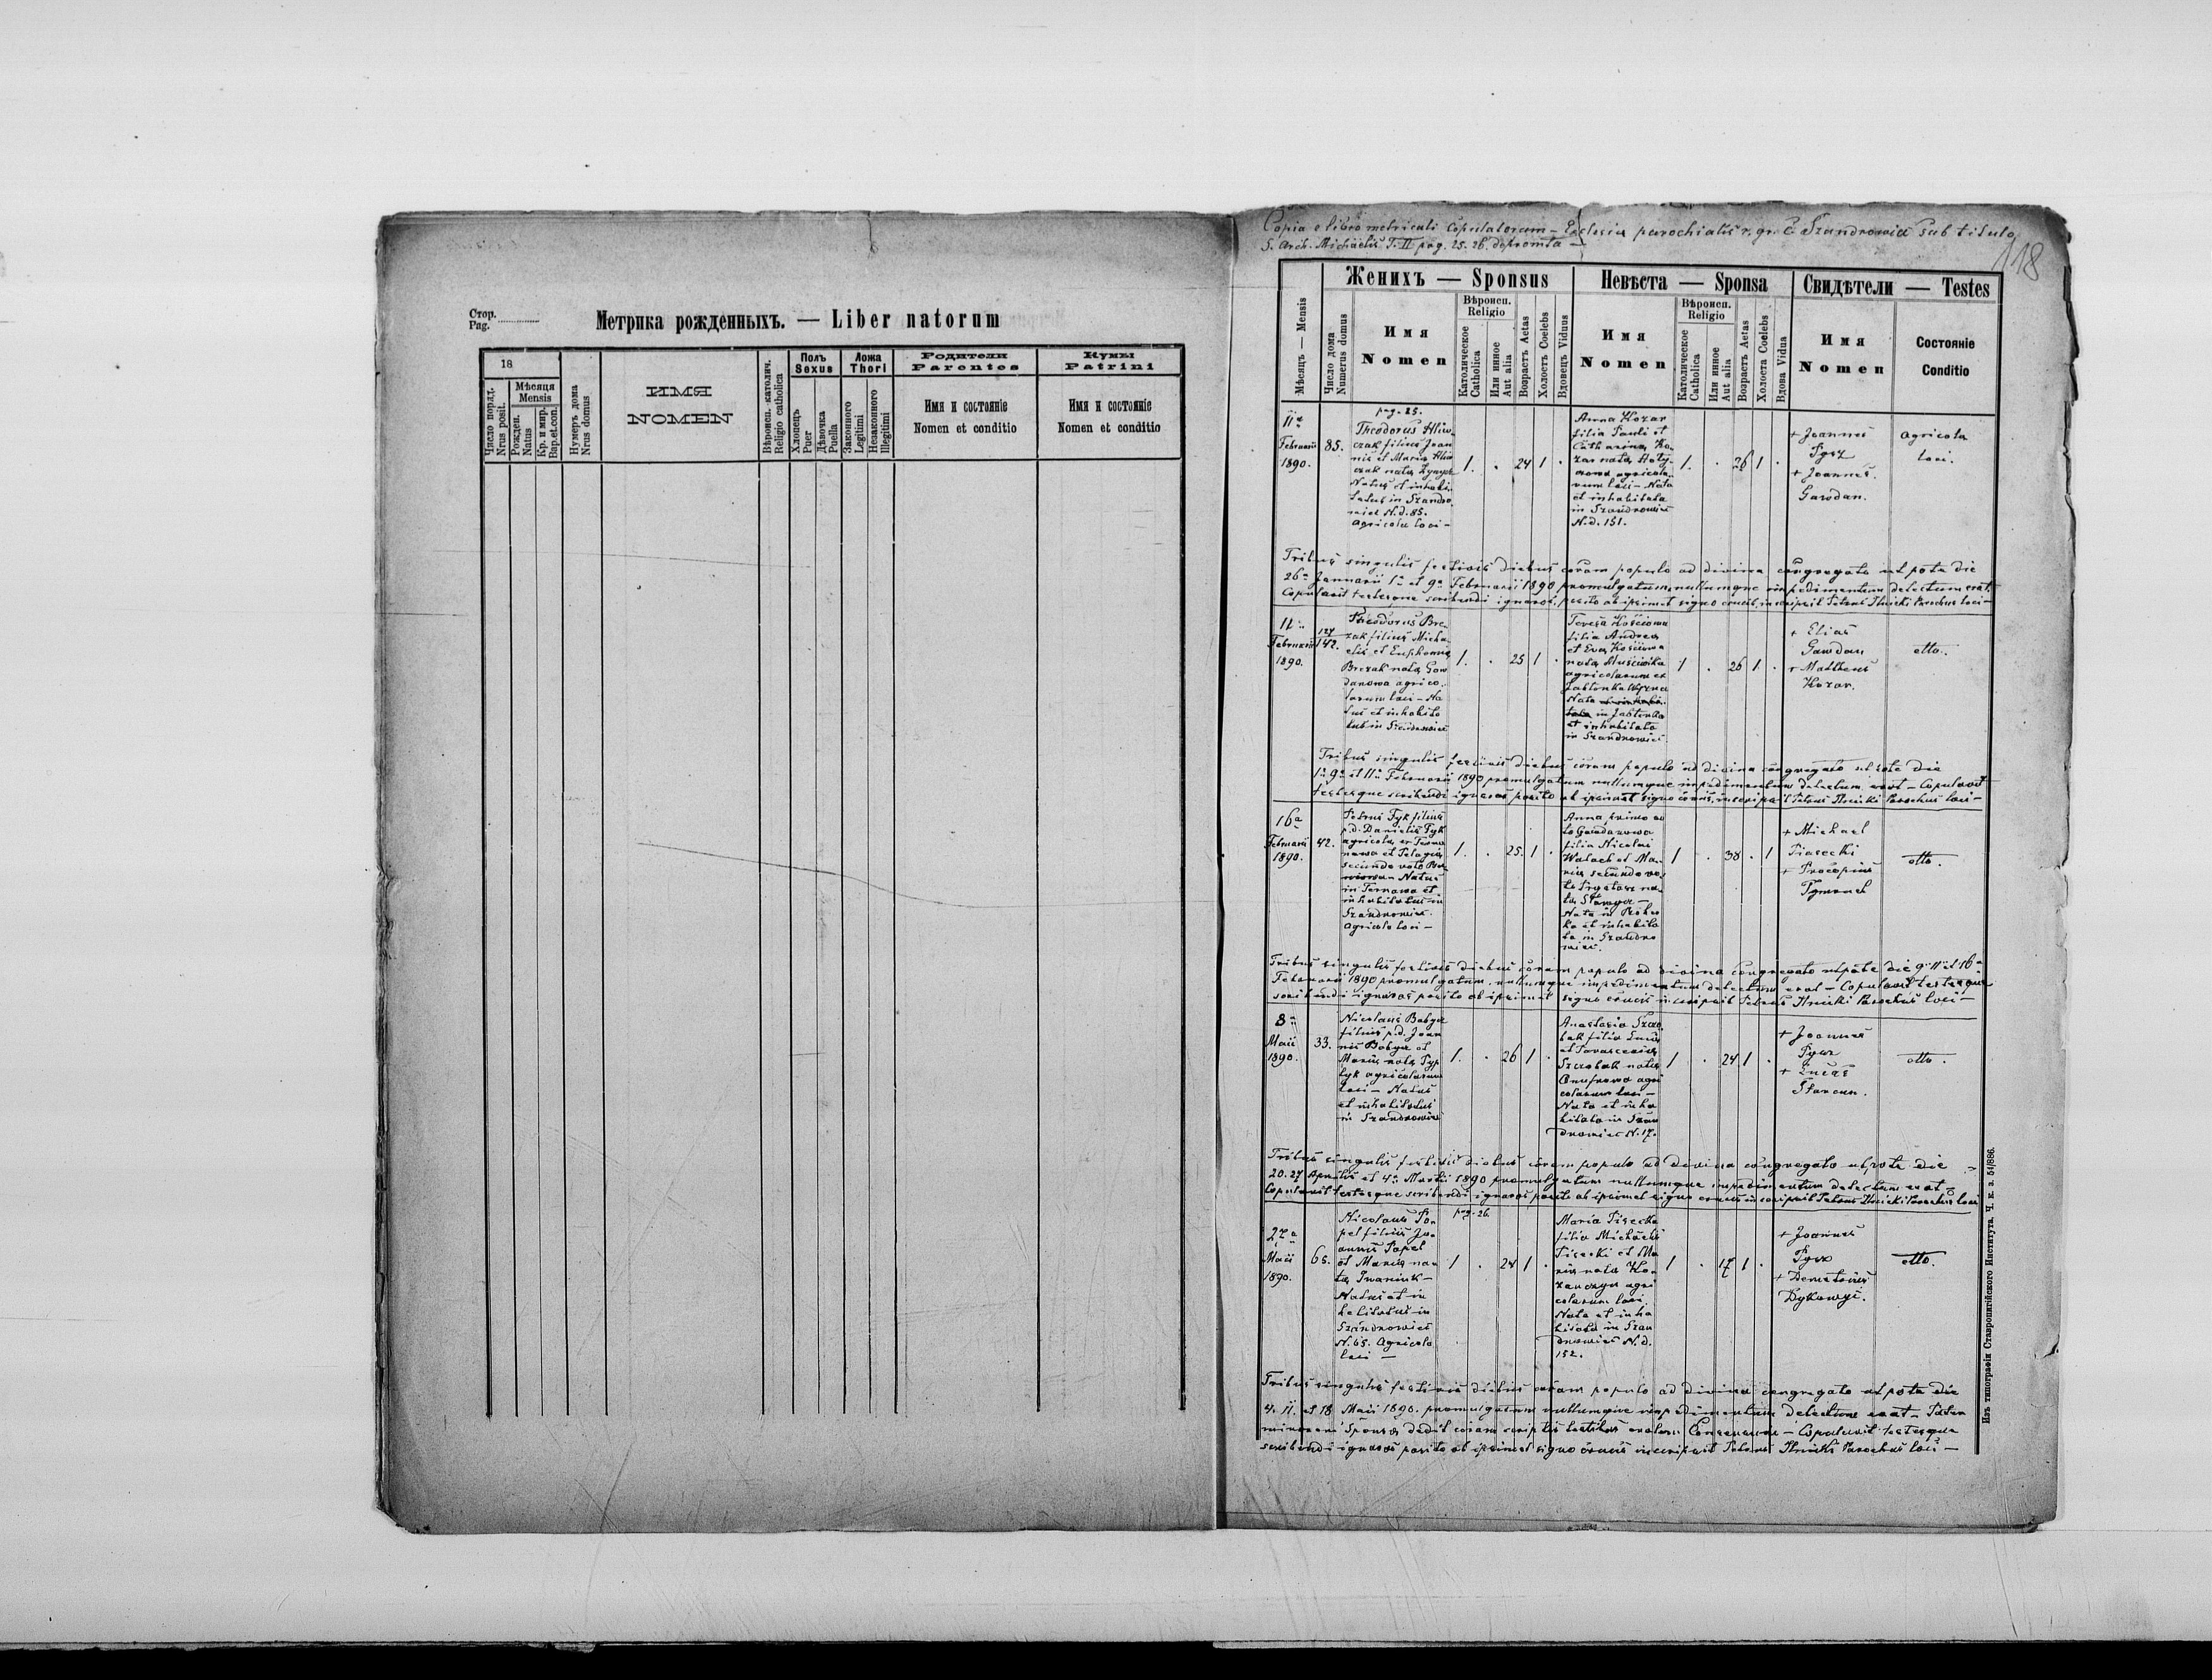 Стор.
Pag.
Метрика рожденныхъ. — Liber natorum
18
Число поряд.
Nrus posit.
Мѣсяця
Mensis
Рожден.
Natus
Кр. и мир.
Bap. et con.
Нумеръ дома
Nrus domus
ИМЯ
NOMEN
Вѣроисп. католич.
Religio catholica
Полъ
Sexus
Хлопецъ
Puer
Дѣвочка
Puella
Ложа
Thori
Законного
Legitimi
Незаконного
Illegitimi
Родители
Parentes
Имя и состоянiе
Nomen et conditio
Кумы
Patrini
Имя и состоянiе
Nomen et conditio
Copia e libro metricali Copulatorum – Ecclesia parochialis r. gr. C Szandrowiec sub titulo
S. Arch. Michaelis T. II pag. 25. 26. depromta –
118
Мѣсяцъ — Mensis
Женихъ — Sponsus
Число дома
Numerus domus
Имя
Nomen
Вѣроисп.
Religio
Католическое
Catholica
Или инное
Aut alia
Возрастъ Aetas
Холостъ Coelebs
Вдовецъ Viduus
Невѣста — Sponsa
Имя
Nomen
Вѣроисп.
Religio
Католическое
Catholica
Или инное
Aut alia
Возрастъ Aetas
Холоста Coelebs
Вдова Vidua
Свидѣтели — Testes
Имя
Nomen
Состоянiе
Conditio
11a
Februarii
1890.
85.
pag. 25.
Theodorus Hliw-
czak filius Joan
nis et Maria Hliw
czak nata
Natus et inhabi-
tatus in Szandro
wiec N.d. 85.
Agricola loci –
1.
.
24
1
.
Anna Kozar
filia Pauli et
Catharina Ko-
zar nata
agricola-
rum loci – Nata
et inhabitata
in Szandrowiec
N.d. 151.
1.
.
26
1
.
+ Joannes
Pysz
+ Joannes
Gawdan.
Agricola
loci.
Tribus singulis festivis diebus coram populo ad divina congregato utpote die
26a Januarii 1a et 9a Februarii 1890 promulgatum, nullumque impedimentum detectum erat.
Copulavit testesque scribendi ignaros, posito ab ipsimet signo crucis, inscripsit Petrus Ilnicki Parochus loci –
11a
Februarii
1890.
127
142.
Theodorus Bre-
zak filius Micha-
elis et Euphemia
Brezak nata Gaw
danowa agrico-
larum loci – Na
tus et inhabita
tus in Szandrowiec
1.
.
25
1
.
Teresa Kościowa
filia Andrea
et Eva Kościowa
nata
agricolarum ex
Jablonka Wyzna
Nata et inhabi-
tata in Jablonka
et inhabitata
in Szandrowiec
1
.
26
1.
.
+ Elias
Gawdan
+ Mattheus
Kozar.
etto.
Tribus singulis festivis diebus coram populo ad divina congregato utpote die
1a 9a et 11a Februarii 1890 promulgatum nullumque impedimentum detectum erat – Copulavit
testesque scribendi ignaros posito ab ipsimet signo crucis, inscripsit Petrus Ilnicki Parochus loci –
16a
Februarii
1890.
42.
Petrus Tyk filius
p.d. Danielis Tyk
agricola ex Terna
wowa et Pelagia
secundo voto
Natus
in Ternawa et
inhabitatus in
Szandrowiec.
Agricola loci –
1.
.
25.
1
.
Anna primo vo
to Gawdanowa
filia Nicolai
Walach et Ma-
ria secundo vo-
to na-
ta
Nata in
et inhabita
ta in Szandro
wiec.
1
.
38
.
1
+ Michael
Pisecki
+ Procopius
etto.
Tribus singulis festivis diebus coram populo ad divina congregato utpote die 9a 11a et 16a
Februarii 1890 promulgatum, nullumque impedimentum detectum erat – Copulavit testesque
scribendi ignaros posito ab ipsimet signo crucis inscripsit Petrus Ilnicki Parochus loci –
8a
Maii
1890.
33.
Nicolaus Babyn
filius p.d. Joan
nis Babyn et
Maria nata Pyp
tyk agricolarum
loci – Natus
et inhabitatus
in Szandrowiec
1.
.
26
1
.
Anastasia Szczer
bak filia Luca
et Parascevia
Szczerbak nata
Onufrowa agri
colarum loci –
Nata et inha
bitata in Szan
drowiec N. 17.
1
.
24
1
.
+ Joannes
Pysz
+ Lucas
Starcun.
etto.
Tribus singulis festivis diebus coram populo ad divina congregato utpote die
20. 27 Aprilis et 4a Martii 1890 promulgatum nullumque impedimentum detectum erat –
Copulavit testesque scribendi ignaros posito ab ipsimet signo crucis inscripsit Petrus Ilnicki Parochus loci
27a
Maii
1890.
65.
pag. 26.
Nicolaus Po-
pel filius Jo-
annis Popel
et Maria na-
ta Iwaniuk –
Natus et in
habitatus in
Szandrowiec
N. 65. Agricola
loci –
1
.
24
1
.
Maria Pisecka
filia Michaelis
Pisecki et Ma
ria nata Ko-
agri
colarum loci
Nata et inha
bitata in Szan
drowiec N.d.
152.
1
.
17
1
.
+ Joannes
Pysz
+ Demetrius
Dykowyi.
etto.
Tribus singulis festivis diebus coram populo ad divina congregato utpote die
4. 11. et 18 Maii 1890. promulgatum nullumque impedimentum detectum erat – Pater
minoreni Sponsa dedit coram scriptis testibus oralem Consensum – Copulavit testesque
scribendi ignaros posito ab ipsimet signo crucis inscripsit Petrus Ilnicki Parochus loci –
Изъ типографiи Ставропигiйского Института. Ч. к. з. 54/886.